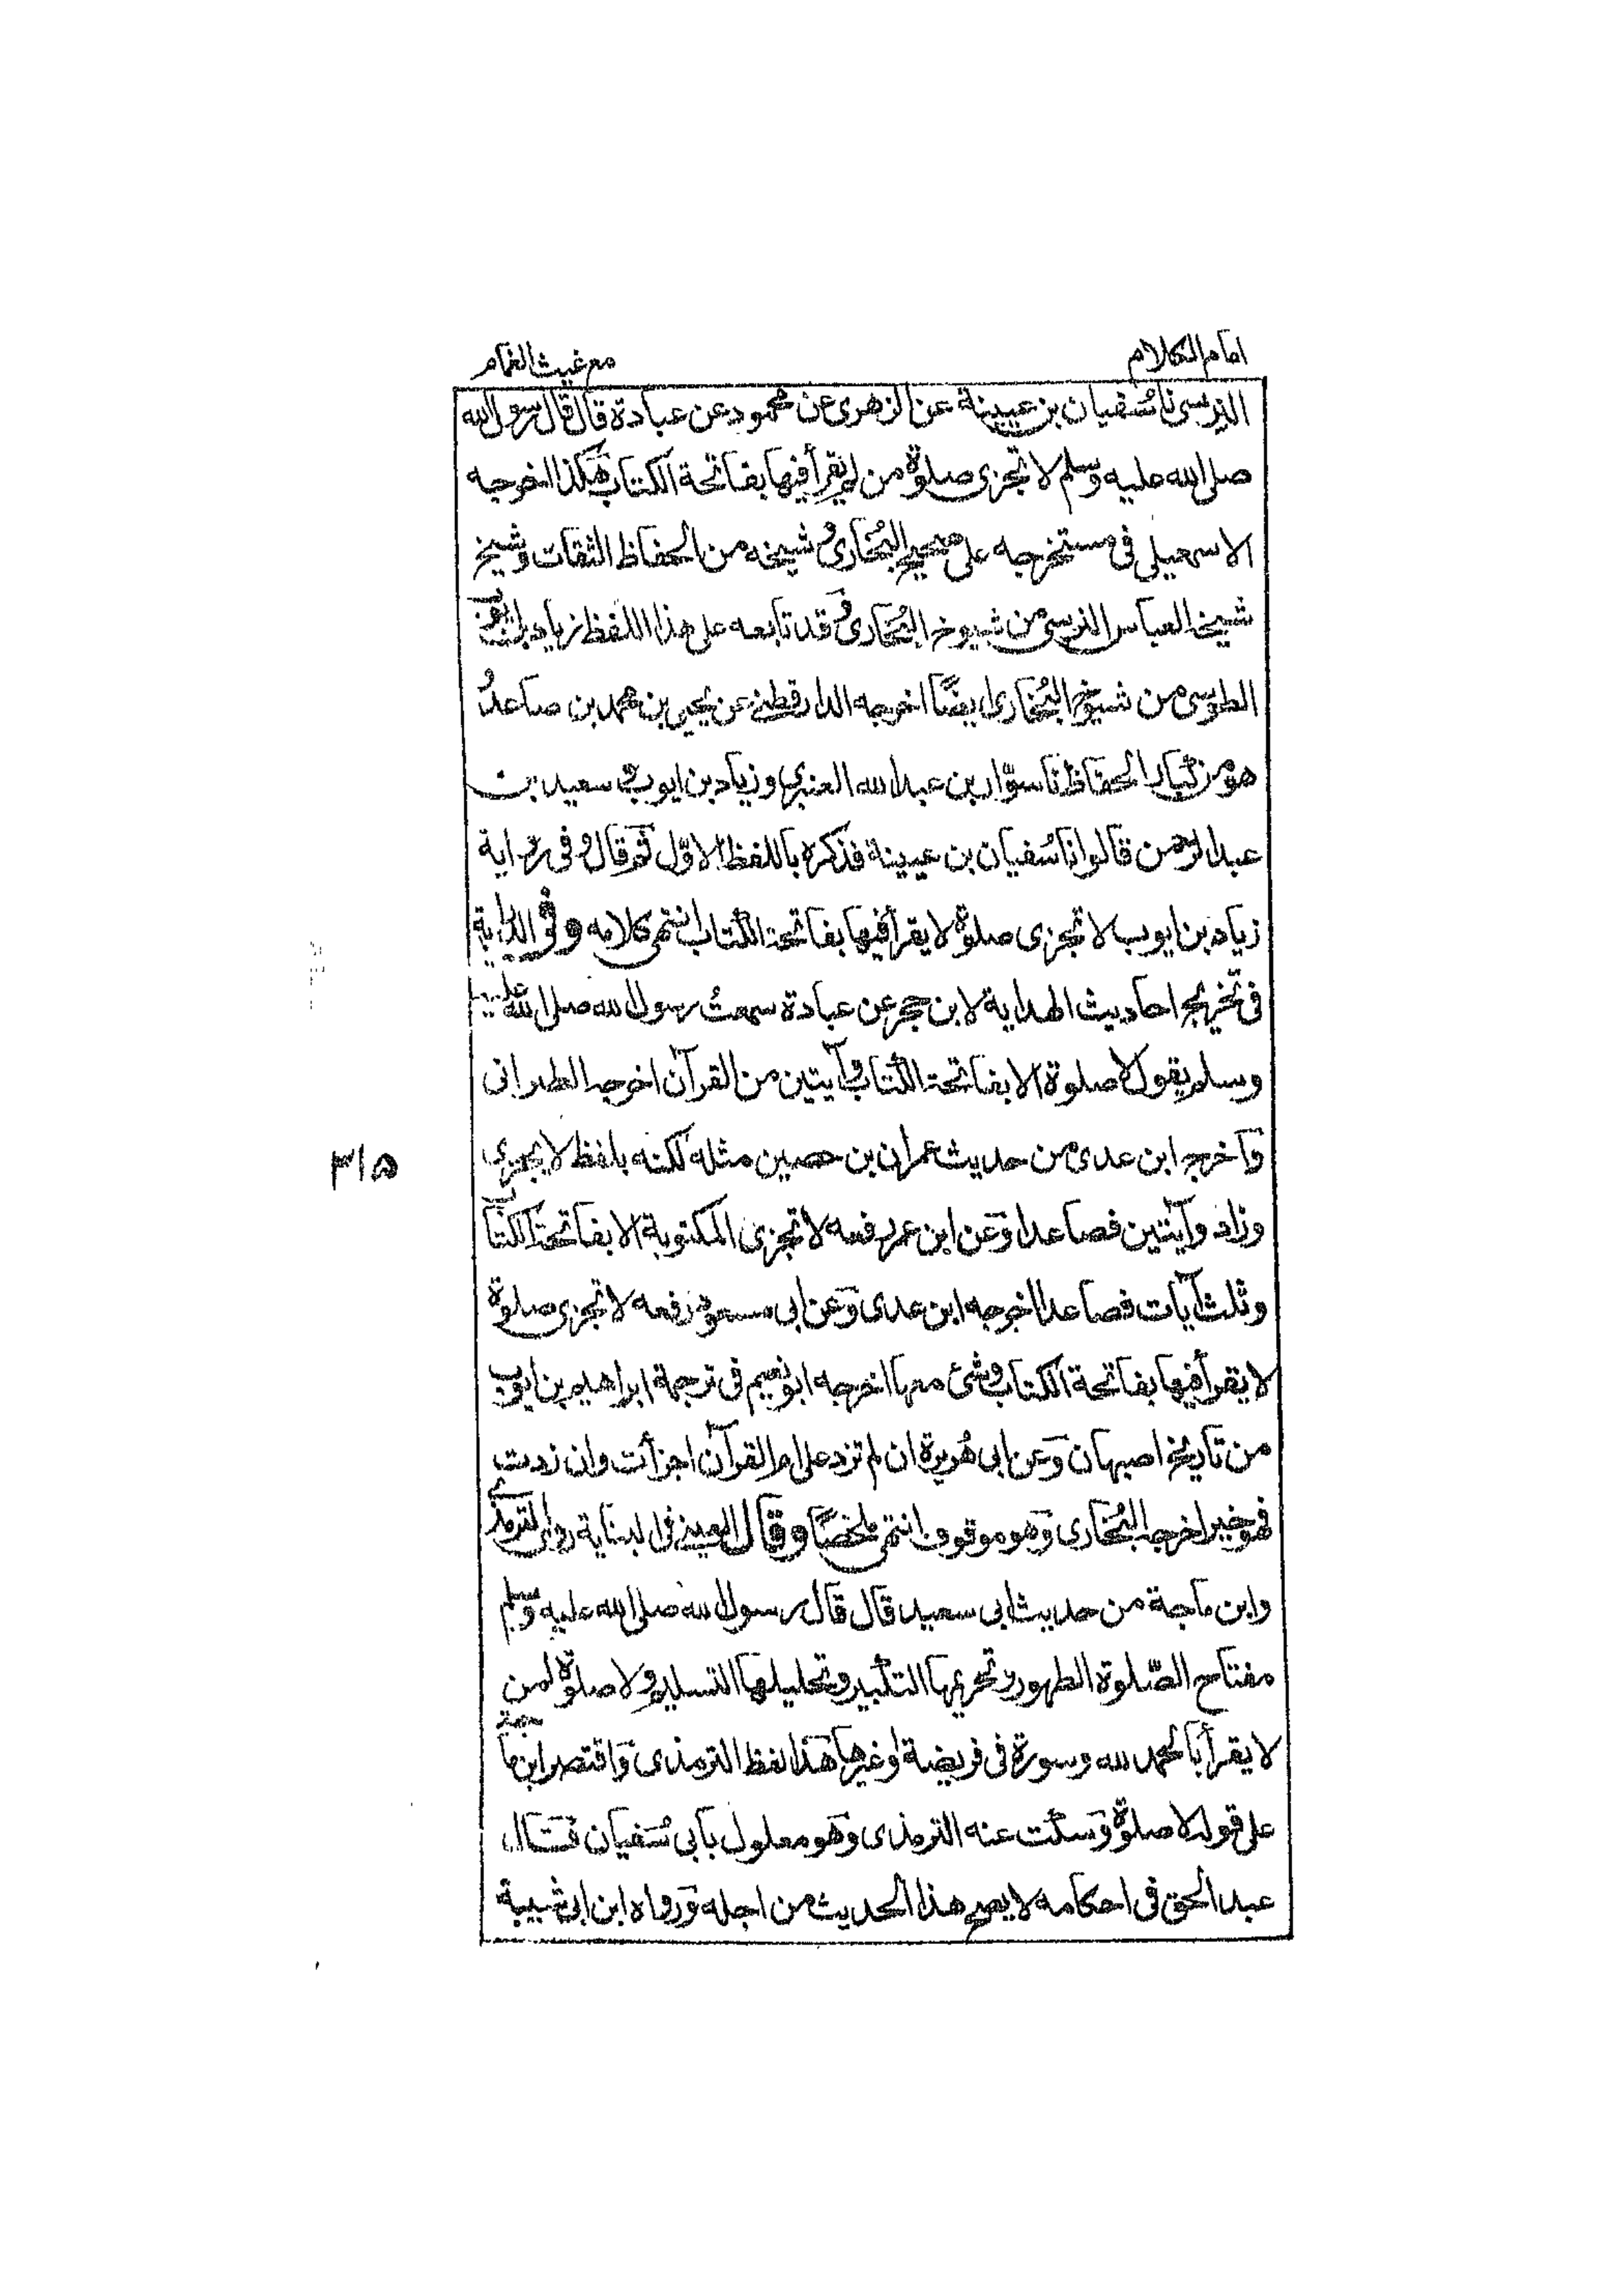 امام الكلام
مع غيث الغمام
النرسى نا سُفيان بن عيينة عن الزهرى عن محمود عن عبادة قال قال رسول الله
صلى الله عليه وسلم لا تجزى صلوة من لم يقرأ فيها بفاتحة الكتاب هكذا اخرجه
الاسمعيلى فى مستخرجه على صحيح البُخارى و شيخه من الحفاظ الثقات وشيخ
شيخه العباس النرسى من شيوخ البُخارى و قد تابعه على هذا اللفظ زياد بن ايوب
الطوسى من شيوخ البُخارى ايضًا اخرجه الدارقطنى عن يحيى بن محمد بن صاعد و
هو من كبار الحفاظ نا سوّار بن عبد الله العنبرى و زياد بن ايوب و سعيد بن
عبد الرحمن قالوا نا سُفيان بن عيينة فذكره باللفظ الاوّل ثم قال و فى رواية
زياد بن ايوب لا تجزى صلوة لا يقرأ فيها بفاتحة الكتاب انتهى كلامه و فى الدراية
فى تخريج احاديث الهداية لابن حجر عن عبادة سمعت رسول الله صلى الله عليه
وسلم يقول لا صلوة الا بفاتحة الكتاب و آيتين من القرآن اخرجه الطبرانى
و آخرجه ابن عدى من حديث عمران بن حصين مثله لكنه بلفظ لا يجزى
وزاد وآيتين فصاعدا وَعن ابن عمر رفعه لا تجزى المكتوبة الا بفاتحة الكتاب
و ثلث آيات فصاعدا اخرجه ابن عدى وَعن ابى مسعود رفعه لا تجزى صلوة
لا يقرأ فيها بفاتحة الكتاب و شئ معها اخرجه ابو نعيم فى ترجمة ابراهيم بن ايوب
من تاريخ اصبهان وَعن ابى هُريرة ان لم تزد على ام القرآن اجزأت وان زدت
فهو خير اخرجه البُخارى وَهو موقوف انتهى ملخصًا و قال العينى فى البناية روى الترمذى
وابن ماجة من حديث ابى سعيد قال قال رسول الله صلى الله عليه وسلم
مفتاح الصّلوة الطهور و تحريمها التكبير و تحليلها التسليم و لا صلوة لمن
لا يقرأ بالحمد لله و سورة فى فريضة او غيرها هَذا لفظ الترمذى وَاقتصر ابن ماجة
على قوله لا صلوة وَسكت عنه الترمذى وَهو معلول بابى سُفيان قَال
عبد الحق فى احكامه لا يصح هذا الحديث من اجله وَرواه ابن ابى شيبة
٣١٥